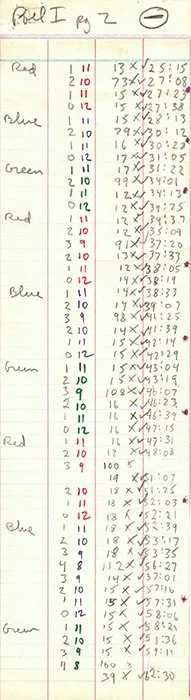 Reel I pg 2 −
Red 1 11 13 × ✓ 25:15
2 10 73 × ✓ 27:08
1 11 15 × ✓ 27:23
0 12 15 × ✓ 27:38
Blue 1 11 15 × ✓ 28:13
2 10 79 × ✓ 30:12
1 11 16 × ✓ 30:28
0 12 17 × ✓ 31:05
Green 1 11 17 × ✓ 31:22
2 10 99 × ✓ 34:01
1 11 12 × ✓ 34:13
0 12 12 × ✓ 34:25
Red 1 11 12 × ✓ 34:37
2 10 12 × ✓ 35:09
3 9 91 × ✓ 37:20
2 10 13 × ✓ 37:33
1 11 12 × ✓ 38:05
0 12 14 × ✓ 38:19
Blue 1 11 14 × ✓ 38:33
2 10 14 × ✓ 39:07
3 9 98 × ✓ 41:25
2 10 14 × ✓ 41:39
1 11 15 × ✓ 42:14
0 12 15 × ✓ 42:29
Green 1 11 15 × ✓ 43:04
2 10 15 × ✓ 43:19
3 9 108 × ✓ 46:07
2 10 16 × ✓ 46:23
1 11 16 × ✓ 46:39
0 12 16 × ✓ 47:15
Red 1 11 16 × ✓ 47:31
2 10 12 × ✓ 48:03
3 9 100 ×
19 × ✓ 51:07
2 10 18 × ✓ 51:25
1 11 18 × ✓ 52:03
0 12 18 × ✓ 52:21
Blue 1 11 18 × ✓ 52:39
2 10 18 × ✓ 53:17
3 9 18 × ✓ 53:35
4 8 112 × ✓ 56:27
3 9 14 × ✓ 57:01
2 10 15 × ✓ 57:16
1 11 15 × ✓ 57:31
0 12 15 × ✓ 58:06
Green 1 11 15 × ✓ 58:21
2 10 15 × ✓ 58:36
3 9 15 × ✓ 59:11
4 8 100 ×
39 × ✓ 62:30